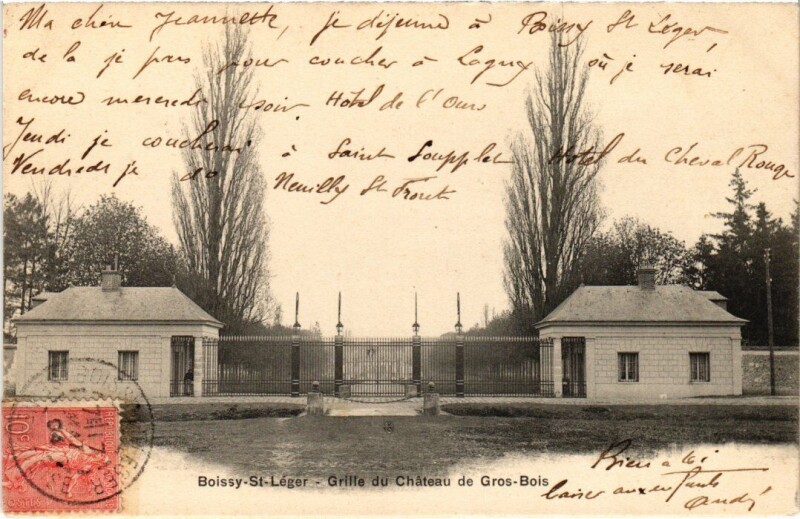 Ma chère Jeannette, je déjeune à Boissy St Léger
de la je pars pour coucher à Lagny où je serai
encore mercredi soir Hôtel de l'Ours
Jeudi je coucherai à Saint Soupplet Hotel du Cheval Rouge
Vendredi je do Neuilly St Front
Boissy-St-Léger - Grille du Château de Gros-Bois
Bien à toi
baiser aux enfants
André